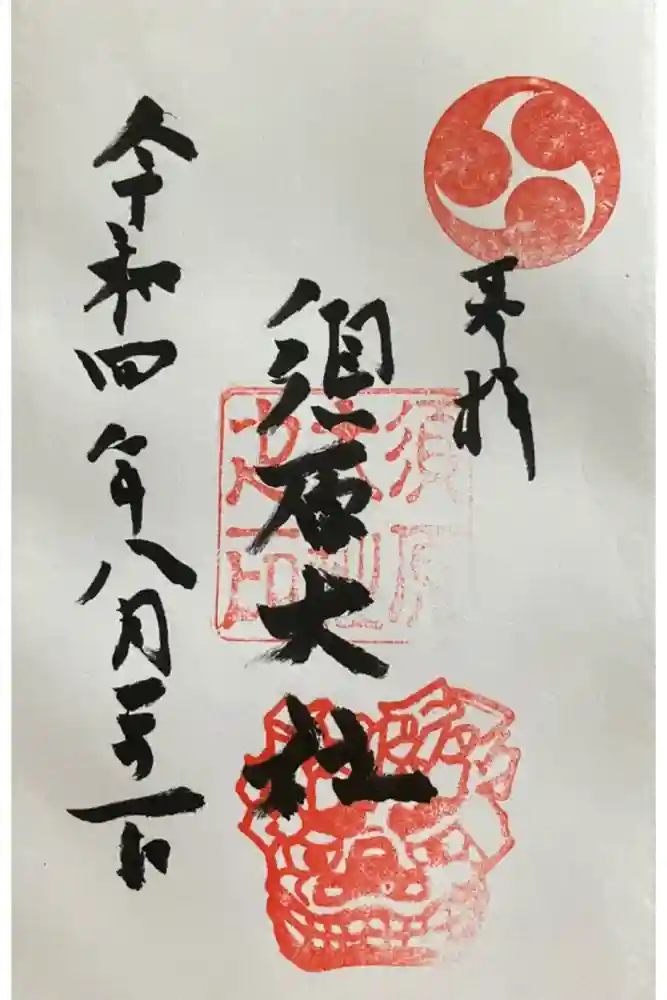 奉拝
須原大社
須原
大社
之印
令和四年八月二十一日